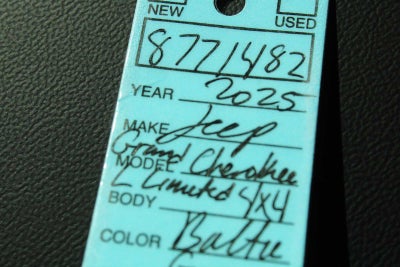 NEW USED
8771482
YEAR 2025
MAKE Jeep
MODEL Grand Cherokee
BODY L Limited 4x4
COLOR Baltic